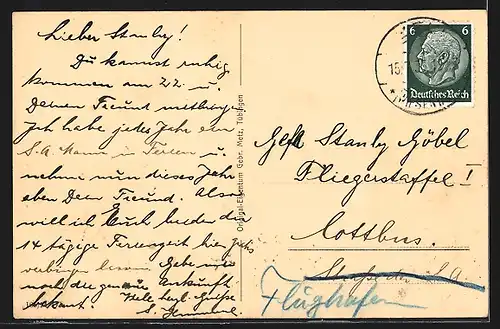 Lieber Stanby!
Du kannst ruhig
kommen am 22. u.
Deinen Freund mitbringen
Ich habe jedes Jahr ein
S.A. Mann in Ferien u.
nehm nun dieses Jahr
eben Dein Freund. Also
will ich Euch beiden die
14 tägige Ferienzeit hier
verbringen lassen. Gebe mir
noch die genaue Ankunft
bekannt. Heil herzl. Grüße
Original-Eigentum Gebr. Metz, Tübingen
6 6
Deutsches Reich
15.
Stanby Göbel
Fliegerstaffel I
Cottbus.
Straße der S.A.
Flughafen